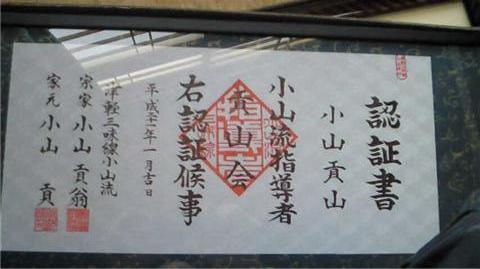 認証書
小山貢山
小山流指導者
貢山会
右認証候事
平成二十一年一月吉日
津軽三味線小山流
宗家 小山貢翁
家元 小山 貢